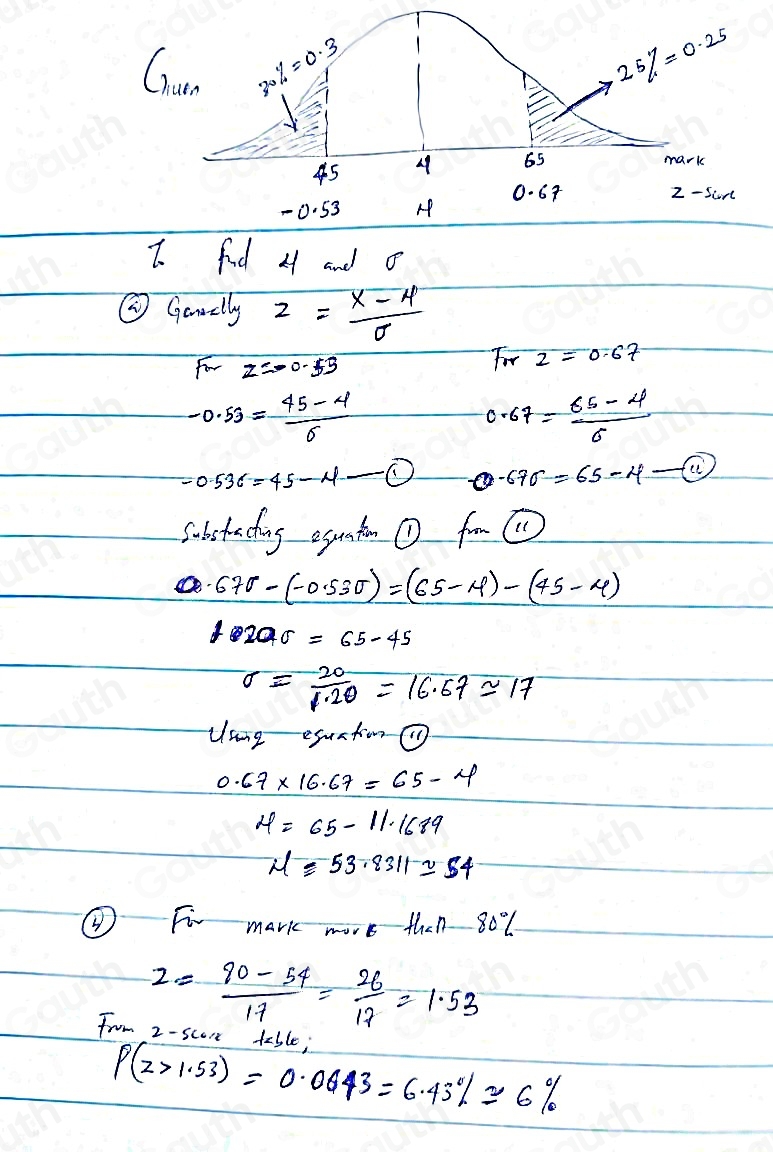 Given
30% = 0.3
25% = 0.25
45 μ 65 mark
-0.53 μ 0.67 z-score
To find μ and σ
(a) Generally z = (x - μ)/σ
For z = -0.53 For z = 0.67
-0.53 = (45 - μ)/σ 0.67 = (65 - μ)/σ
-0.53σ = 45 - μ — (i) 0.67σ = 65 - μ — (ii)
Substracting equation (i) from (ii)
0.67σ - (-0.53σ) = (65 - μ) - (45 - μ)
1.20σ = 65 - 45
σ = 20/1.20 = 16.67 ≃ 17
Using equation (ii)
0.67 × 16.67 = 65 - μ
μ = 65 - 11.1689
μ = 53.8311 ≃ 54
(b) For mark more than 80%
z = (80 - 54)/17 = 26/17 = 1.53
From z-score table;
P(z > 1.53) = 0.0643 = 6.43% ≃ 6%